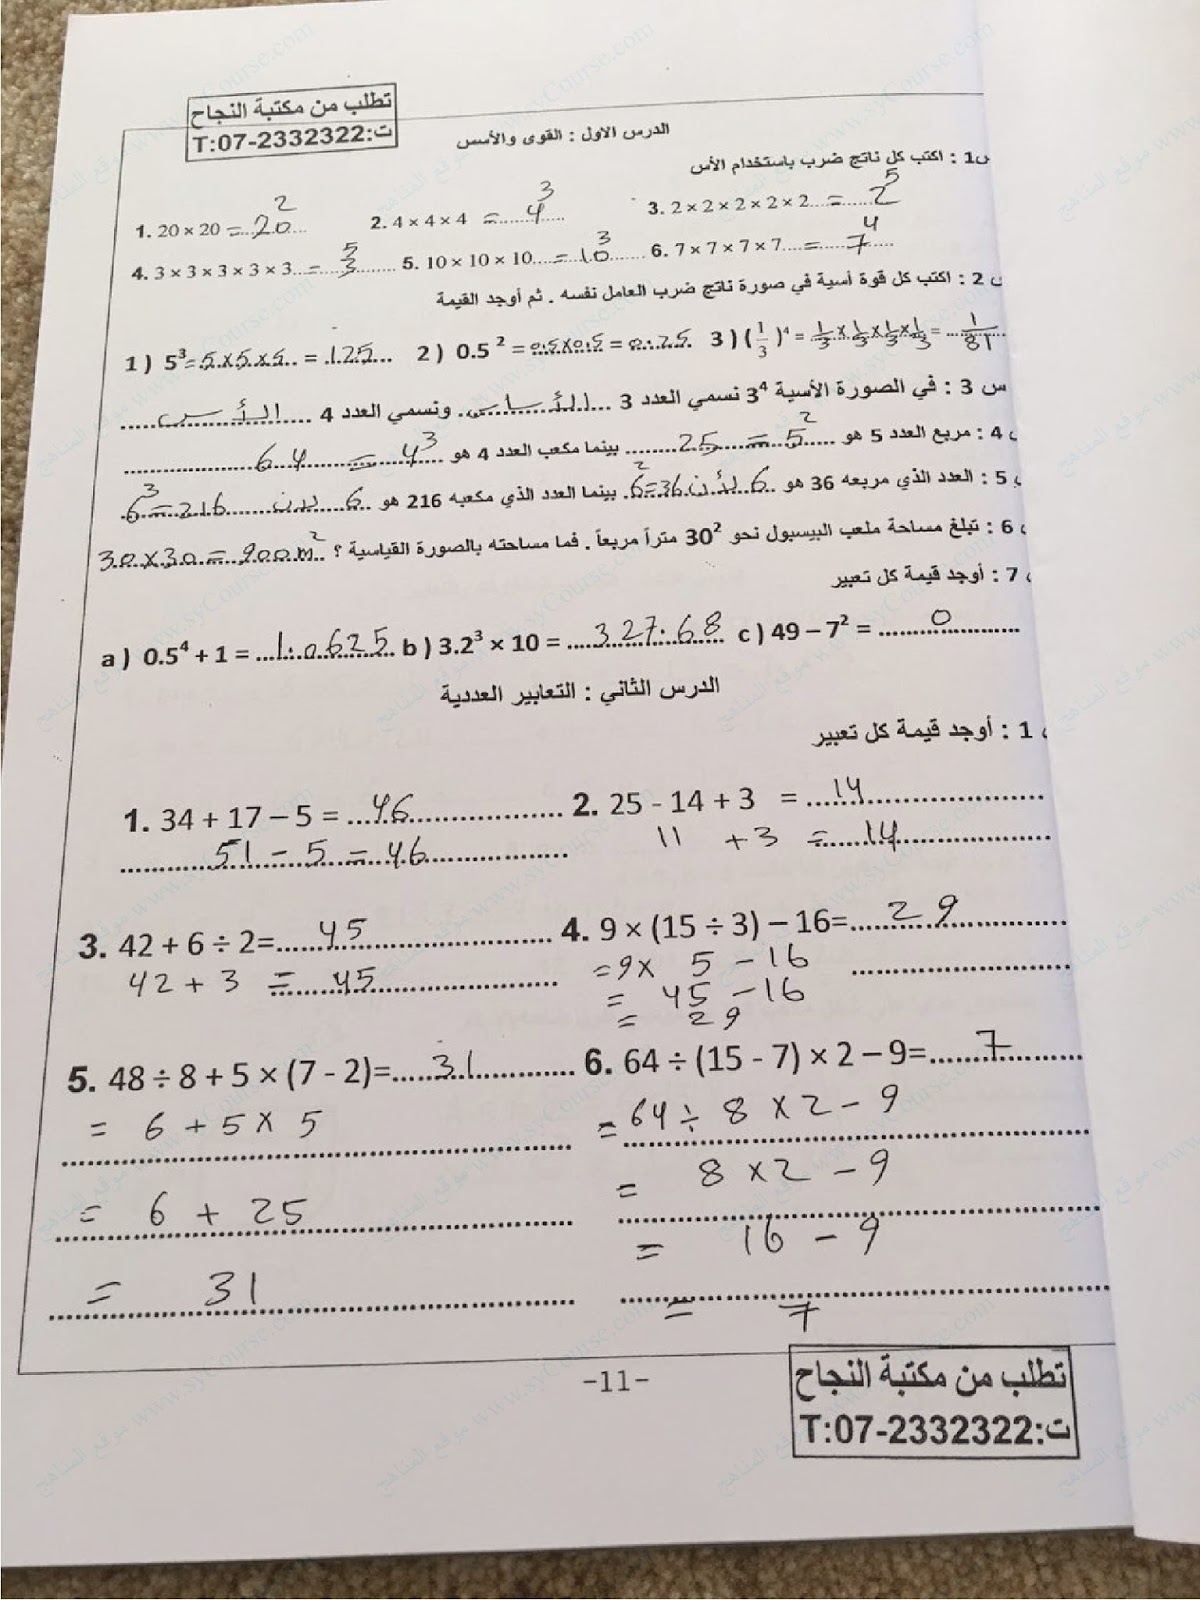 تطلب من مكتبة النجاح
T:07-2332322:ت
الدرس الاول : القوى والأسس
س1 : اكتب كل ناتج ضرب باستخدام الأس
1. 20 × 20 = 20²  2. 4 × 4 × 4 = 4³  3. 2 × 2 × 2 × 2 × 2 = 2⁵
4. 3 × 3 × 3 × 3 × 3 = 3⁵  5. 10 × 10 × 10 = 10³  6. 7 × 7 × 7 × 7 = 7⁴
س 2 : اكتب كل قوة أسية في صورة ناتج ضرب العامل نفسه . ثم أوجد القيمة
1 ) 5³ = 5×5×5 = 125  2 ) 0.5² = 0.5×0.5 = 0.25  3 ) (1/3)⁴ = 1/3×1/3×1/3×1/3 = 1/81
س 3 : في الصورة الأسية 3⁴ نسمي العدد 3 الأساس ونسمي العدد 4 الأس
4 : مربع العدد 5 هو 5² = 25 بينما مكعب العدد 4 هو 4³ = 64
5 : العدد الذي مربعه 36 هو 6 لأن 6²=36 بينما العدد الذي مكعبه 216 هو 6 لأن 6³=216
6 : تبلغ مساحة ملعب البيسبول نحو 30² متراً مربعاً . فما مساحته بالصورة القياسية ؟ 30×30=900m²
7 : أوجد قيمة كل تعبير
a ) 0.5⁴ + 1 = 1.0625  b ) 3.2³ × 10 = 327.68  c ) 49 – 7² = 0
الدرس الثاني : التعابير العددية
1 : أوجد قيمة كل تعبير
1. 34 + 17 – 5 = 46  2. 25 - 14 + 3 = 14
51 - 5 = 46  11 + 3 = 14
3. 42 + 6 ÷ 2= 45  4. 9 × (15 ÷ 3) – 16= 29
42 + 3 = 45  =9× 5 - 16
= 45 - 16
= 29
5. 48 ÷ 8 + 5 × (7 - 2)= 31  6. 64 ÷ (15 - 7) × 2 – 9= 7
= 6 + 5 × 5  = 64 ÷ 8 × 2 - 9
= 6 + 25  = 8 × 2 - 9
= 31  = 16 - 9
= 7
-11-
تطلب من مكتبة النجاح
T:07-2332322:ت
موقع المناهج www.syCourse.com